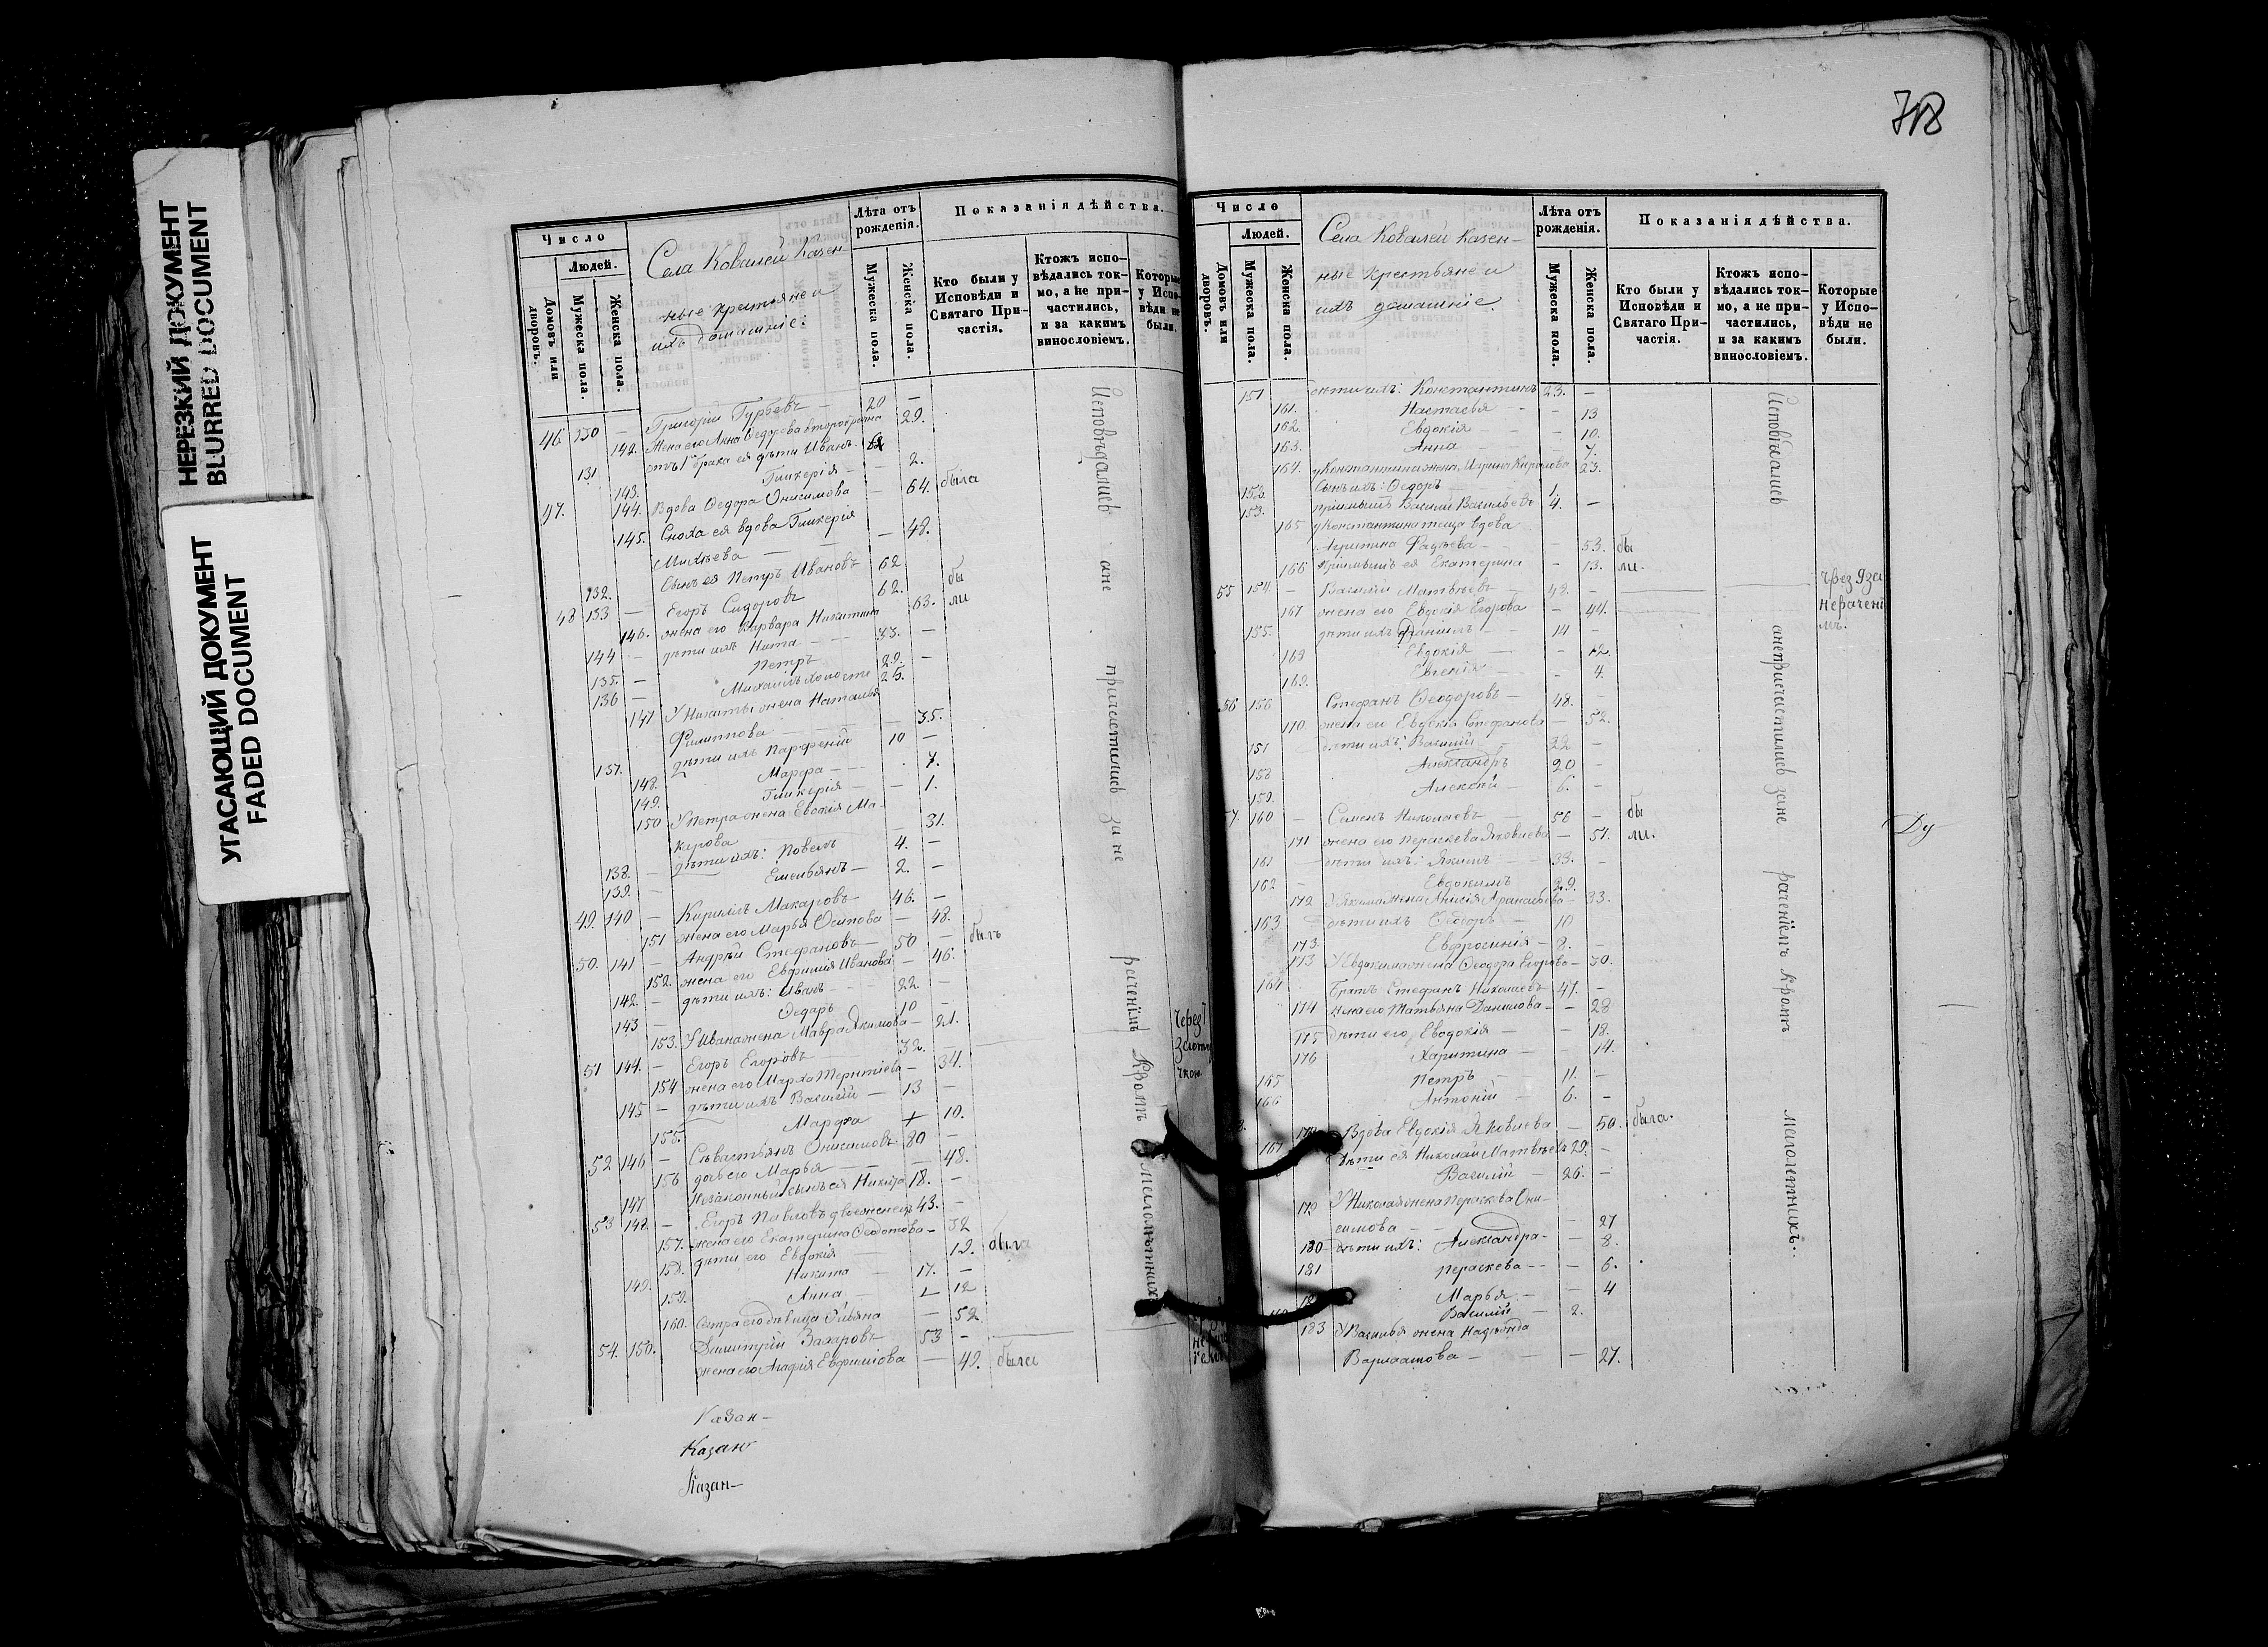 НЕРЕЗКИЙ ДОКУМЕНТ
BLURRED DOCUMENT
УГАСАЮЩИЙ ДОКУМЕНТ
FADED DOCUMENT
Число
Людей.
Домовъ или дворовъ.
Мужеска пола.
Женска пола.
Села Ковалей Казен-
ные крестьяне и
ихъ домашніе:
Лѣта отъ рожденія.
Мужеска пола.
Женска пола.
Показанія дѣйства.
Кто были у Исповѣди и Святаго Причастія.
Ктожъ исповѣдались токмо, а не причастились, и за какимъ винословіемъ.
Которые у Исповѣди не были.
46 130 — Григорій Гурьевъ — 20 —
142. Жена его Анна Ѳедорова второбрачна 29.
131 отъ 1 брака ея дѣти Иванъ
143. Гликерія — — 2.
47. 144. Вдова Ѳедора Онисимова — 64. была
145. Сноха ея вдова Гликерія
Михѣева — — 48.
132. Сынъ ея Петръ Ивановъ 62
48 133 — Егоръ Сидоровъ 62. бы
146. жена его Варвара Никитина 63. ли
144 — дѣти ихъ Никита — 33. —
135. — Петръ 29. —
136 — Михаилъ холостъ 25.
147 У Никиты жена Наталья
Филиппова — 35.
137. дѣти ихъ Парфеній 10 —
148. Марфа — — 7.
149. Гликерія — — 1.
150 У Петра жена Евдокія Ма-
карова 31.
138. — дѣти ихъ: Павелъ 4. —
139. — Емельянъ — 2. —
49. 140 — Кириллъ Макаровъ 46. —
151 жена его Марья Осипова — 48.
50. 141 — Андрѣй Стефановъ — 50 — былъ
152. жена его Евфимія Иванова — 46.
142. — дѣти ихъ: Иванъ — 22. —
143 — Ѳедоръ 10 —
153. У Ивана жена Мавра Якимова — 21.
51 144. — Егоръ Егоровъ 32. —
154 жена его Марфа Терентіева — 34.
145 — дѣти ихъ Василій — 13 —
155. Марфа 10.
52 146 — Севастьянъ Онисимовъ 80 —
156 дочь его Марья — — 48.
147 Незаконный сынъ ея Никита 18. —
53 148. — Егоръ Павловъ двоеженецъ 43. —
157. жена его Екатерина Ѳедотова — 32
158. дѣти его Евдокія 19. была
149. Никита 17. —
159. Анна — — 12
160. Сестра его дѣвица Ульяна — 52
54. 150. Димитрій Захаровъ 53 —
жена его Агафія Евфимова — 49. была
Исповѣдались а не причастились за не раченіемъ Кромѣ малолѣтнихъ
Казан-
Казан-
Казан-
718
Число
Людей.
Домовъ или дворовъ.
Мужеска пола.
Женска пола.
Села Ковалей Казен-
ные крестьяне и
ихъ домашніе.
Лѣта отъ рожденія.
Мужеска пола.
Женска пола.
Показанія дѣйства.
Кто были у Исповѣди и Святаго Причастія.
Ктожъ исповѣдались токмо, а не причастились, и за какимъ винословіемъ.
Которые у Исповѣди не были.
151 дѣти ихъ: Константинъ 23. —
161. Настасья — — 13
162. Евдокія — — 10.
163. Анна — — 7.
164. у Константина жена Ирина Кирилова 23.
152. Сынъ ихъ: Ѳедоръ — 1.
153. пріимышъ Василій Васильевъ 4. —
165 у Константина теща вдова
Фадѣева — — 53. бы
166 пріимышъ ея Екатерина — 13. ли.
55 154. — Василій Матвѣевъ — 48. —
167 жена его Евдокія Егорова — 44.
155. дѣти ихъ Даніилъ — 14 —
168 Евдокія — — 12.
169. Евгенія — — 4.
56 156 Стефанъ Ѳеодоровъ — 48. —
170 жена его Евдокія Стефанова — 52.
157 дѣти ихъ: Василій 22 —
158 Александръ 20 —
159. Алексѣй — 6. —
57. 160 — Семенъ Николаевъ — 56 — бы
171 жена его Пераскева Яковлева — 51. ли.
161 дѣти ихъ: Якимъ — 33. —
162 — Евдокимъ 29.
172 У Якима жена Анисія Афанасьева — 33.
163 дѣти ихъ Ѳеодоръ — 10
173. Евфросинія — 8. —
173 У Евдокима жена Ѳеодора Егорова — 30.
164 Братъ Стефанъ Николаевъ 47. —
174 жена его Татьяна Данилова — — 28
175 дѣти его, Евдокія — — 18.
176 Харитина — — 14.
165 Петръ — 11. —
166 Антоній — 6. —
Вдова Евдокія Яковлева — 50. была.
167 дѣти ея Николай Матвѣевъ 29. —
Василій 26. —
179 У Николая жена Пераскева Они-
симова — — 27
180 дѣти ихъ: Александра — — 8.
181 Пераскева — — 6.
Марья — — 4
Василій — 2.
183 У Василья жена Надежда
Варлаамова — — 27.
Исповѣдались а не причастились за не раченіемъ Кромѣ малолетнихъ.